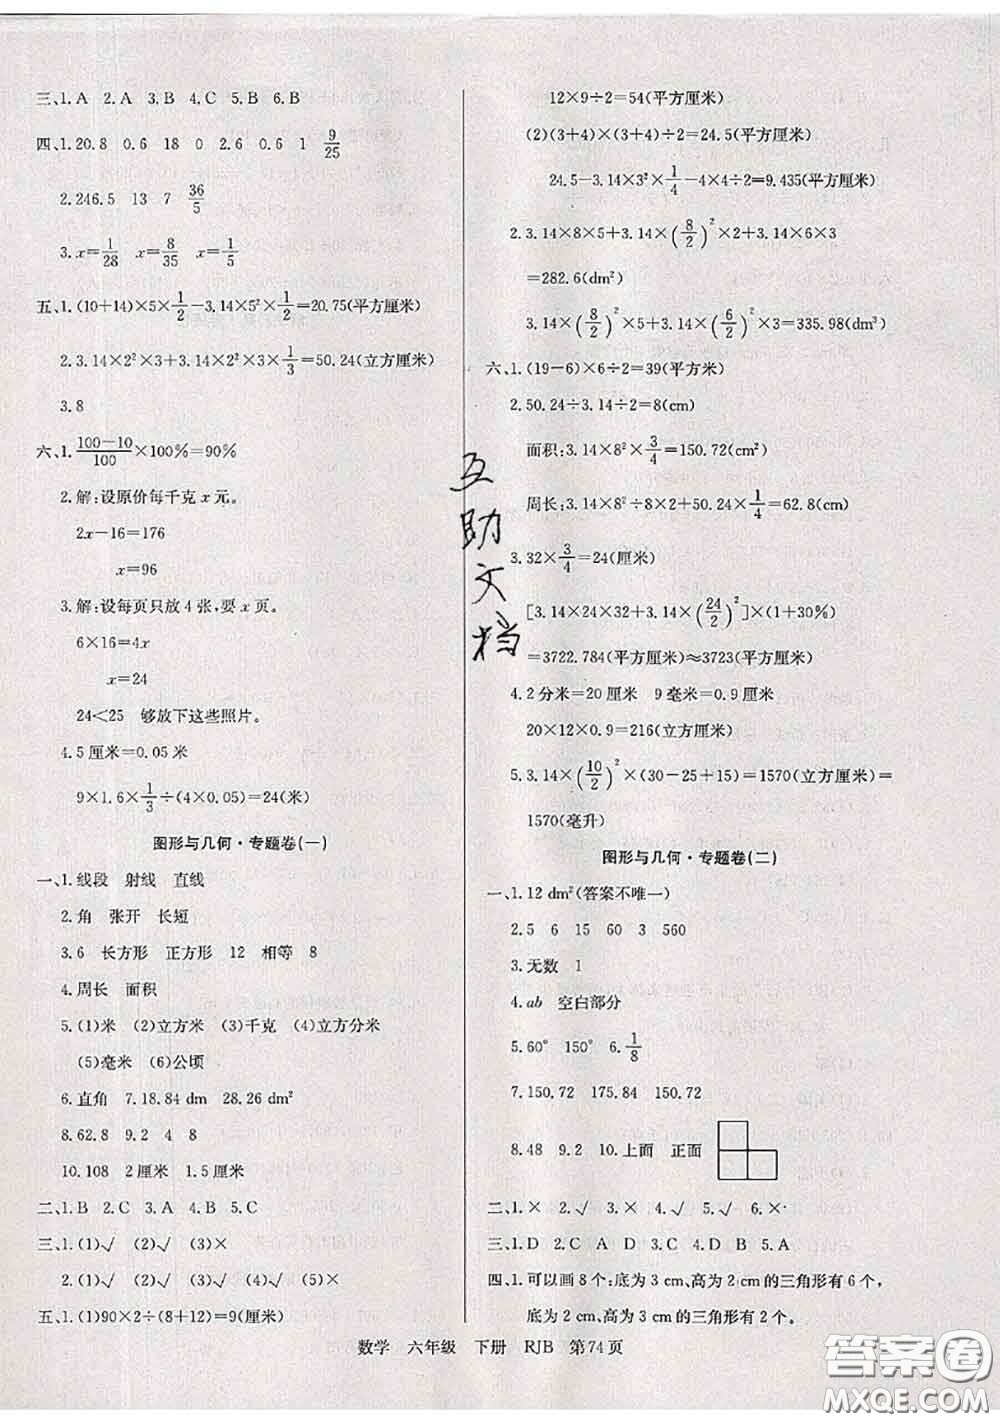 三、1.A 2.A 3.B 4.C 5.B 6.B
四、1.20.8 0.6 18 0 2.6 0.6 1 9/25
2.246.5 13 7 36/5
3.x=1/28 x=8/35 x=1/5
五、1.(10+14)×5×1/2-3.14×5²×1/2=20.75(平方厘米)
2.3.14×2²×3+3.14×2²×3×1/3=50.24(立方厘米)
3.8
六、1.(100-10)/100×100%=90%
2.解:设原价每千克x元。
2x-16=176
x=96
3.解:设每页只放4张,要x页。
6×16=4x
x=24
24<25 够放下这些照片。
4.5厘米=0.05米
9×1.6×1/3÷(4×0.05)=24(米)
图形与几何·专题卷(一)
一、1.线段 射线 直线
2.角 张开 长短
3.6 长方形 正方形 12 相等 8
4.周长 面积
5.(1)米 (2)立方米 (3)千克 (4)立方分米
(5)毫米 (6)公顷
6.直角 7.18.84 dm 28.26 dm²
8.62.8 9.2 4 8
10.108 2厘米 1.5厘米
二、1.B 2.C 3.A 4.B 5.C
三、1.(1)√ (2)√ (3)×
2.(1)√ (2)√ (3)√ (4)√ (5)×
五、1.(1)90×2÷(8+12)=9(厘米)
12×9÷2=54(平方厘米)
(2)(3+4)×(3+4)÷2=24.5(平方厘米)
24.5-3.14×3²×1/4-4×4÷2=9.435(平方厘米)
2.3.14×8×5+3.14×(8/2)²×2+3.14×6×3
=282.6(dm²)
3.14×(8/2)²×5+3.14×(6/2)²×3=335.98(dm³)
六、1.(19-6)×6÷2=39(平方米)
2.50.24÷3.14÷2=8(cm)
面积:3.14×8²×3/4=150.72(cm²)
周长:3.14×8²÷8×2+50.24×1/4=62.8(cm)
3.32×3/4=24(厘米)
[3.14×24×32+3.14×(24/2)²]×(1+30%)
=3722.784(平方厘米)≈3723(平方厘米)
4.2分米=20厘米 9毫米=0.9厘米
20×12×0.9=216(立方厘米)
5.3.14×(10/2)²×(30-25+15)=1570(立方厘米)=
1570(毫升)
图形与几何·专题卷(二)
一、1.12 dm²(答案不唯一)
2.5 6 15 60 3 560
3.无数 1
4.ab 空白部分
5.60° 150° 6.1/8
7.150.72 175.84 150.72
8.48 9.2 10.上面 正面
二、1.× 2.√ 3.× 4.√ 5.√ 6.×
三、1.D 2.C A D 3.C 4.D B 5.A
四、1.可以画8个:底为3 cm、高为2 cm的三角形有6个,
底为2 cm、高为3 cm的三角形有2个。
互助文档
数学 六年级 下册 RJB 第74页
答案圈
MXQE.COM